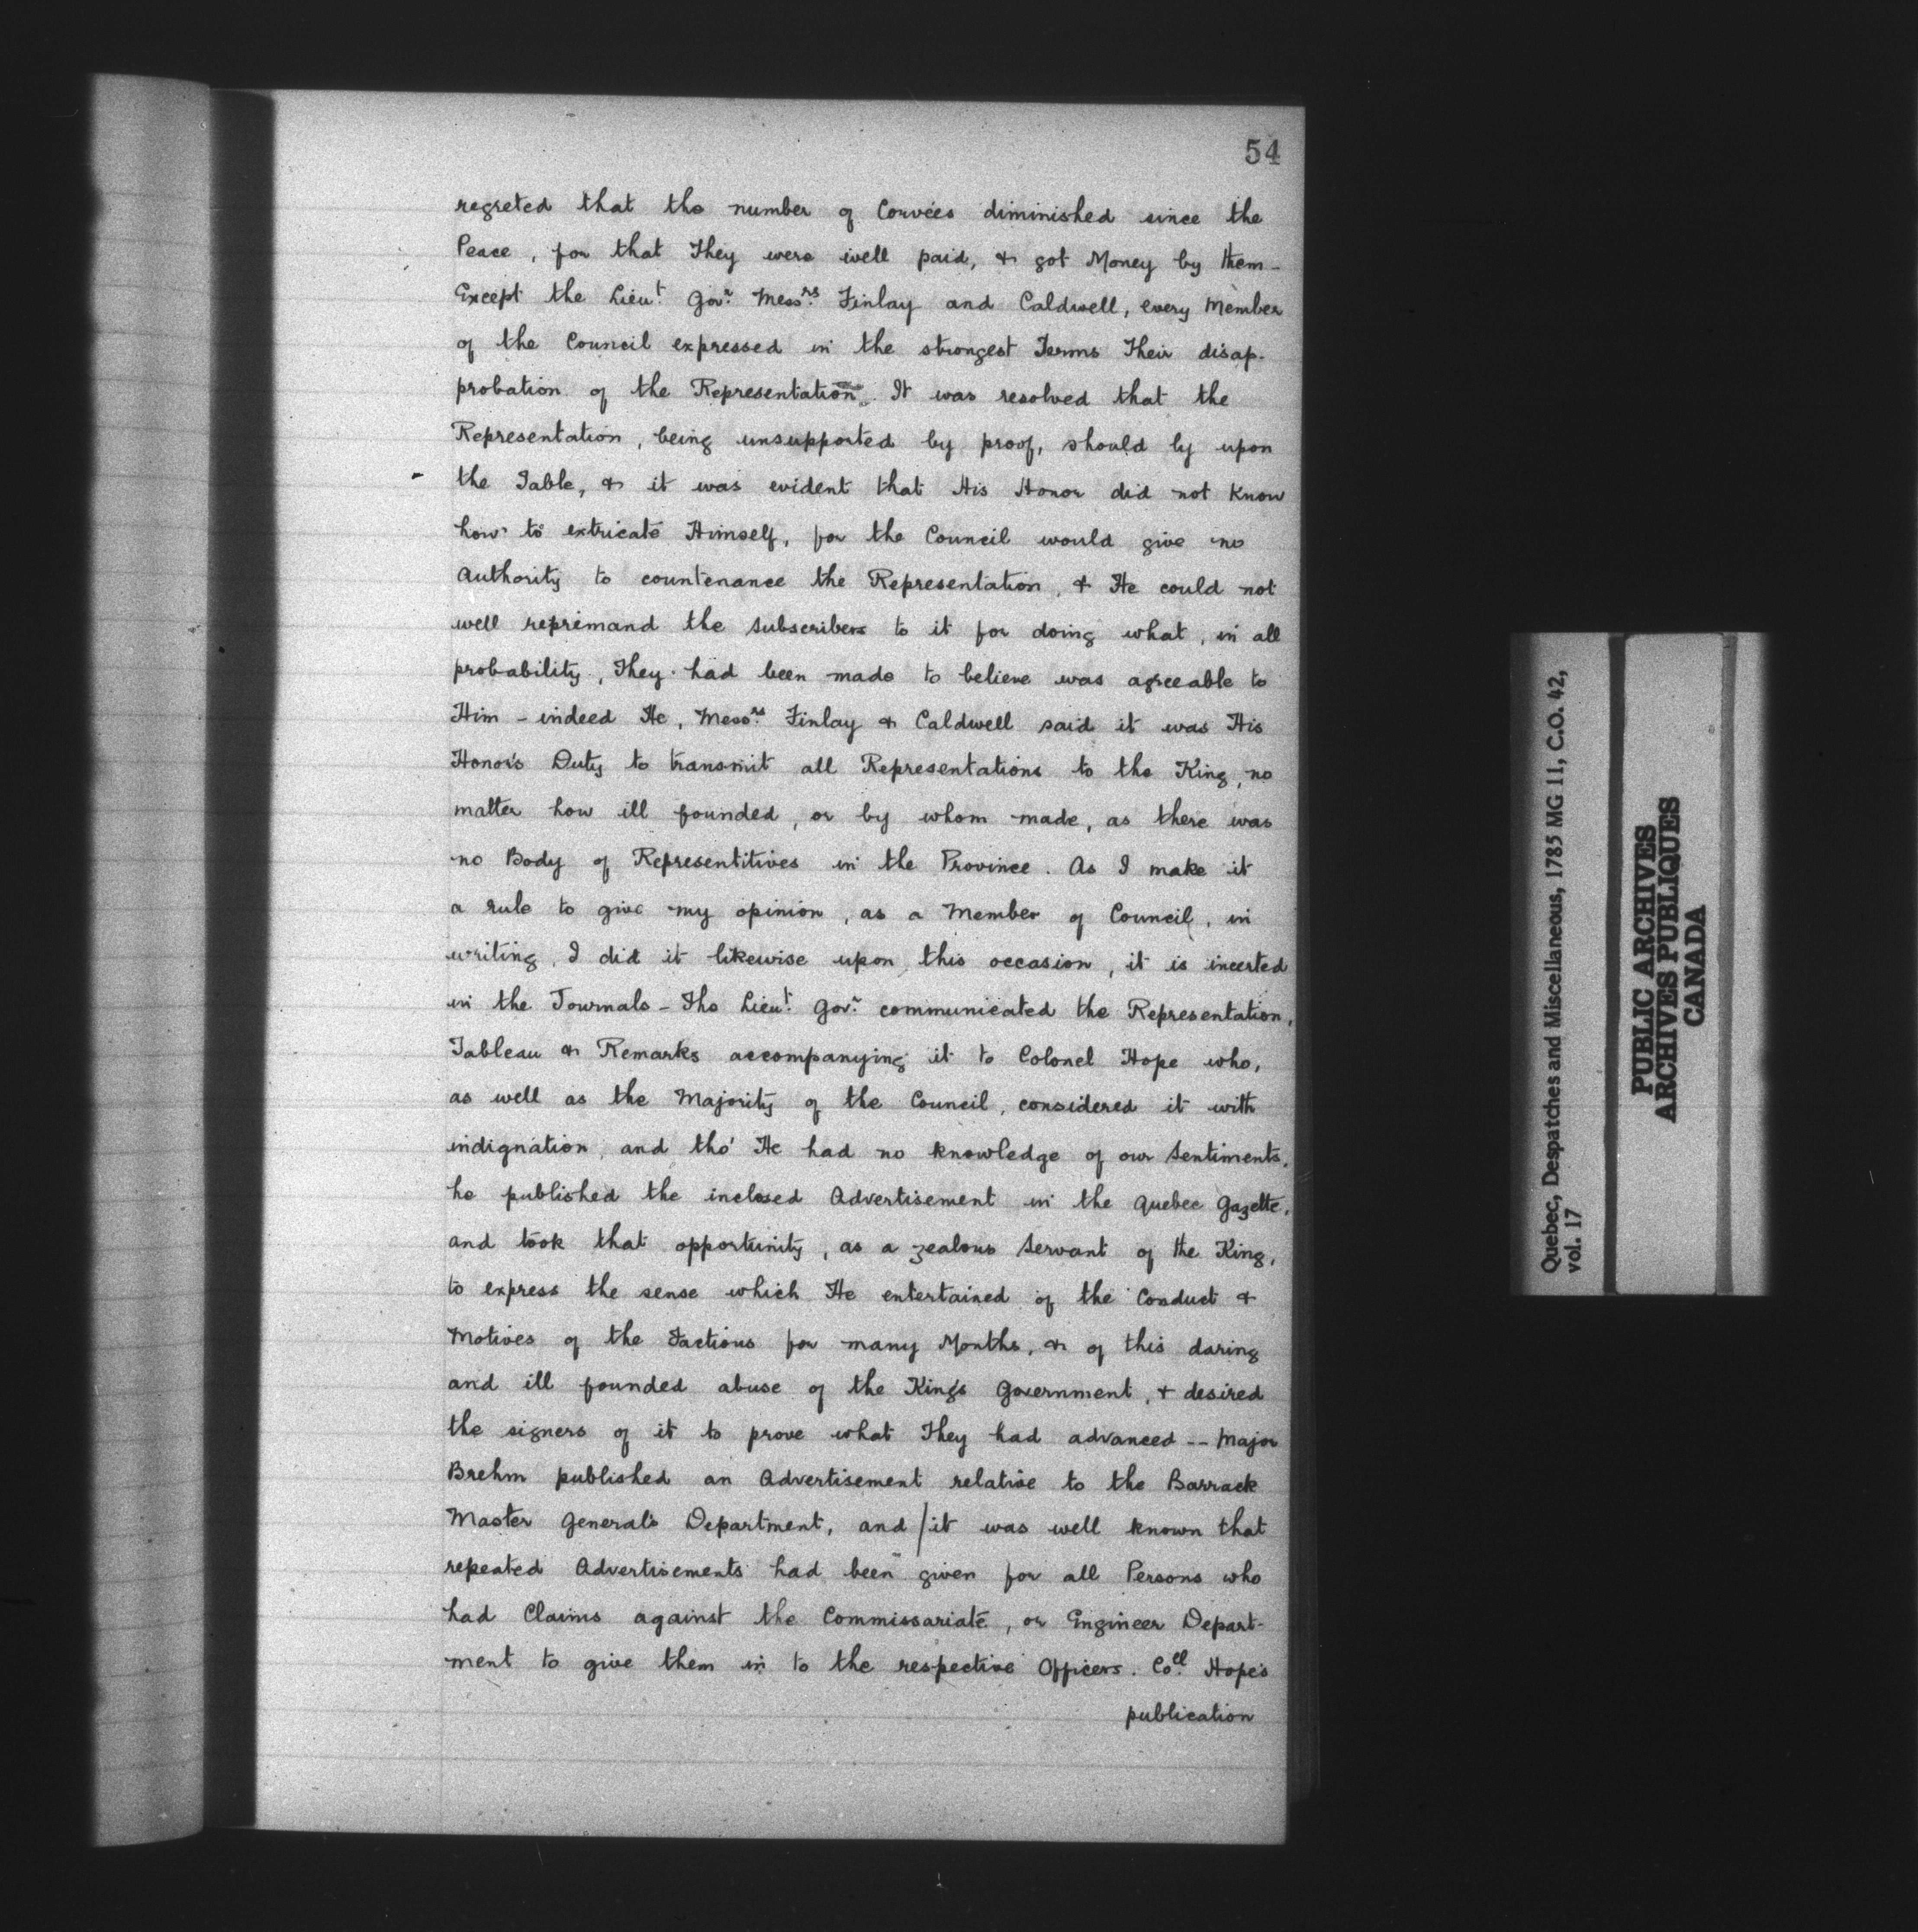 54
regreted that the number of Corvées diminished since the
Peace, for that They were well paid, & got Money by them_
Except the Lieu.t Gov.r Mess.rs Finlay and Caldwell, every Member
of the Council expressed in the strongest Terms Their disap-
probation of the Representation. It was resolved that the
Representation, being unsupported by proof, should ly upon
the Table, & it was evident that His Honor did not know
how to extricate Himself, for the Council would give no
Authority to countenance the Representation, & He could not
well reprimand the Subscribers to it for doing what, in all
probability, They had been made to believe was agreeable to
Him - indeed He, Mess.rs Finlay & Caldwell said it was His
Honor's Duty to transmit all Representations to the King, no
matter how ill founded, or by whom made, as there was
no Body of Representitives in the Province. As I make it
a rule to give my opinion, as a Member of Council, in
writing, I did it likewise upon this occasion, it is incerted
in the Journals - The Lieu.t Gov.r communicated the Representation,
Tableau & Remarks accompanying it to Colonel Hope who,
as well as the Majority of the Council, considered it with
indignation, and tho' He had no knowledge of our Sentiments,
he published the inclosed Advertisement in the Quebec Gazette,
and took that opportunity, as a zealous Servant of the King,
to express the sense which He entertained of the Conduct &
Motives of the Factious for many Months, & of this daring
and ill founded abuse of the King's Government, & desired
the signers of it to prove what They had advanced -- Major
Brehm published an Advertisement relative to the Barrack
Master General's Department, and /it was well known that
repeated Advertisements had been given for all Persons who
had Claims against the Commissariate, or Engineer Depart-
ment to give them in to the respective Officers. Co.ll Hope's
publication
Quebec, Despatches and Miscellaneous, 1785 MG 11, C.O. 42,
vol. 17
PUBLIC ARCHIVES
ARCHIVES PUBLIQUES
CANADA